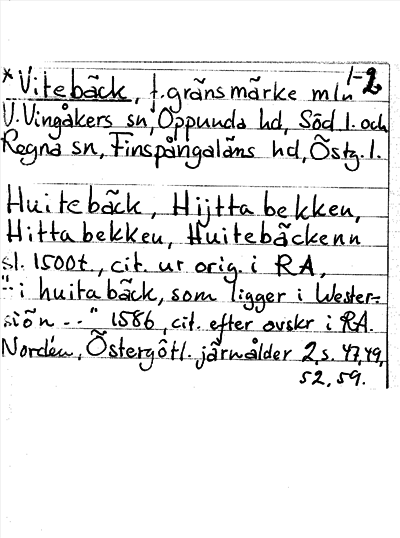 1-2
*Vitebäck, f. gränsmärke mln
V. Vingåkers sn, Oppunda hd, Söd. l. och
Regna sn, Finspångaläns hd, Östg. l.
Huitebäck, Hijttabekken,
Hittabekken, Huitebäckenn
sl. 1500t., cit. ur orig. i RA,
"- i huitabäck, som ligger i Wester-
siön - -" 1586, cit. efter avskr i RA.
Nordén, Östergötl. järnålder 2, s. 47, 49,
52, 59.